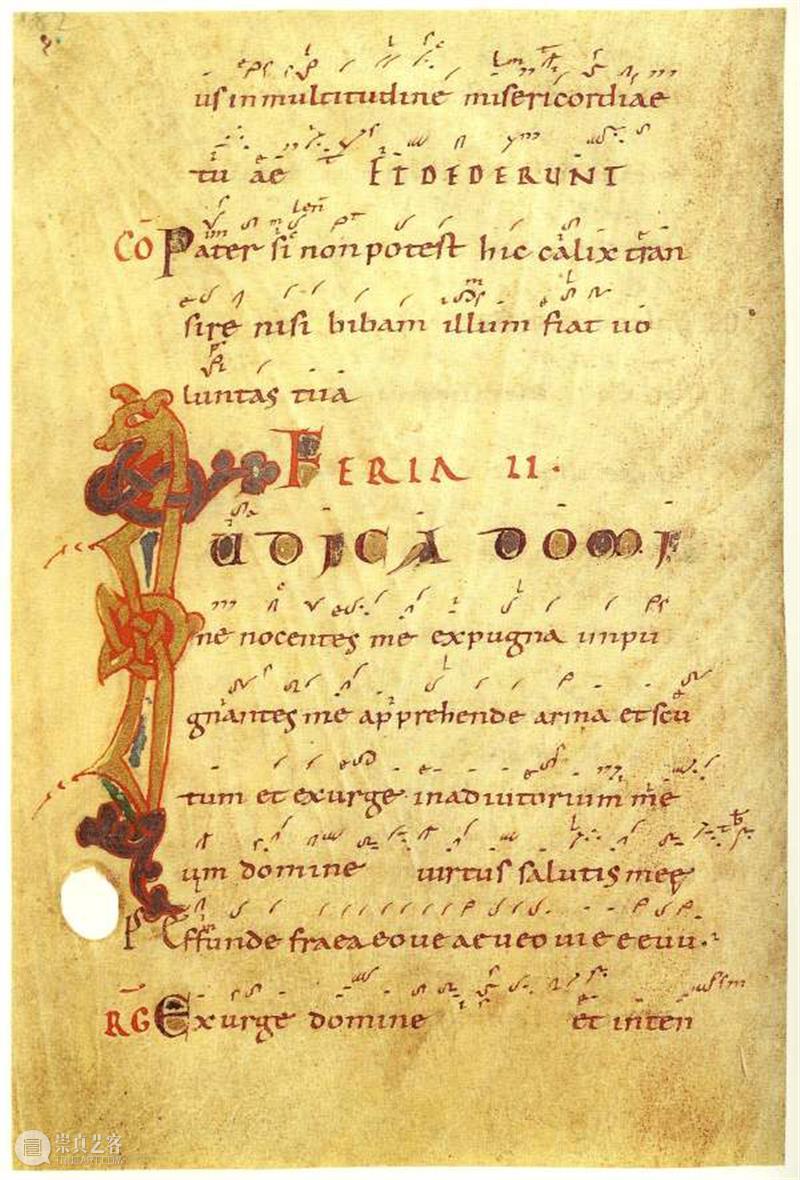 us in multitudine misericordiae
tu ae ET DEDERUNT
CŌ Pater si non potest hic calix tran
sire nisi bibam illum fiat uo
luntas tua
FERIA II.
IUDICA DOMI
ne nocentes me expugna inpu
gnantes me apprehende arma et scu
tum et exurge in adiutorium me
um domine uirtus salutis meę
Effunde fraea
RG Exurge domine et inten
崇真艺客